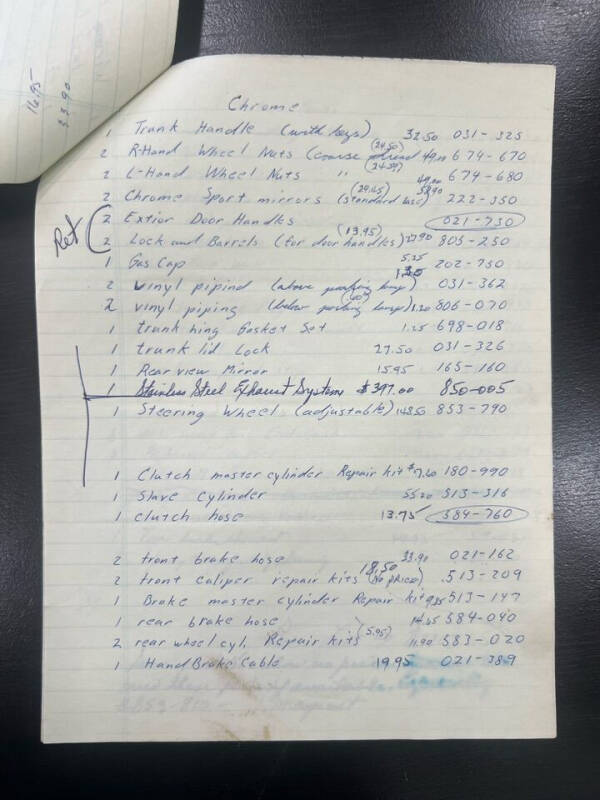 16.95
33.90
Chrome
1 Trunk Handle (with keys) 32.50 031-325
2 R-Hand Wheel Nuts (coarse thread (24.50) 49.00 674-670
2 L-Hand Wheel Nuts " (24.50) 49.00 674-680
2 Chrome Sport mirrors (29.45) (standard 58.90 222-350
Ret
2 Extior Door Handls 021-730
2 Lock and Barrels (for door handles) (13.95) 27.90 805-250
1 Gas Cap 5.25 202-750
2 vinyl pipind (above parking lamp) 031-362
2 vinyl piping (below parking lamps) 1.20 806-070
1 trunk hing Gasket Set 1.25 698-018
1 trunk lid Lock 27.50 031-326
1 Rear view Mirror 15.95 165-160
1 Stainless Steel Exhaust System $397.00 850-005
1 Steering Wheel (adjustable) 148.50 853-790
1 Clutch master cylinder Repair kit $7.60 180-990
1 Slave cylinder 55.20 513-316
1 clutch hose 13.75 584-760
2 front brake hose 33.90 021-162
2 front caliper repair kits 18.50 (no price) 513-209
1 Brake master cylinder Repair kit 513-147
1 rear brake hose 584-040
2 rear wheel cyl. Repair kits (5.95) 11.90 583-020
1 Hand Brake Cable 19.95 021-389